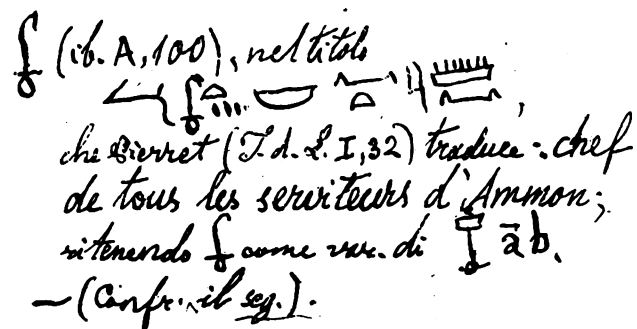 (ib. A, 100), nel titolo
che Pierret (I. d. L. I, 32) traduce: chef
de tous les serviteurs d'Ammon;
ritenendo come var. di āb.
— (Confr. il seg.).